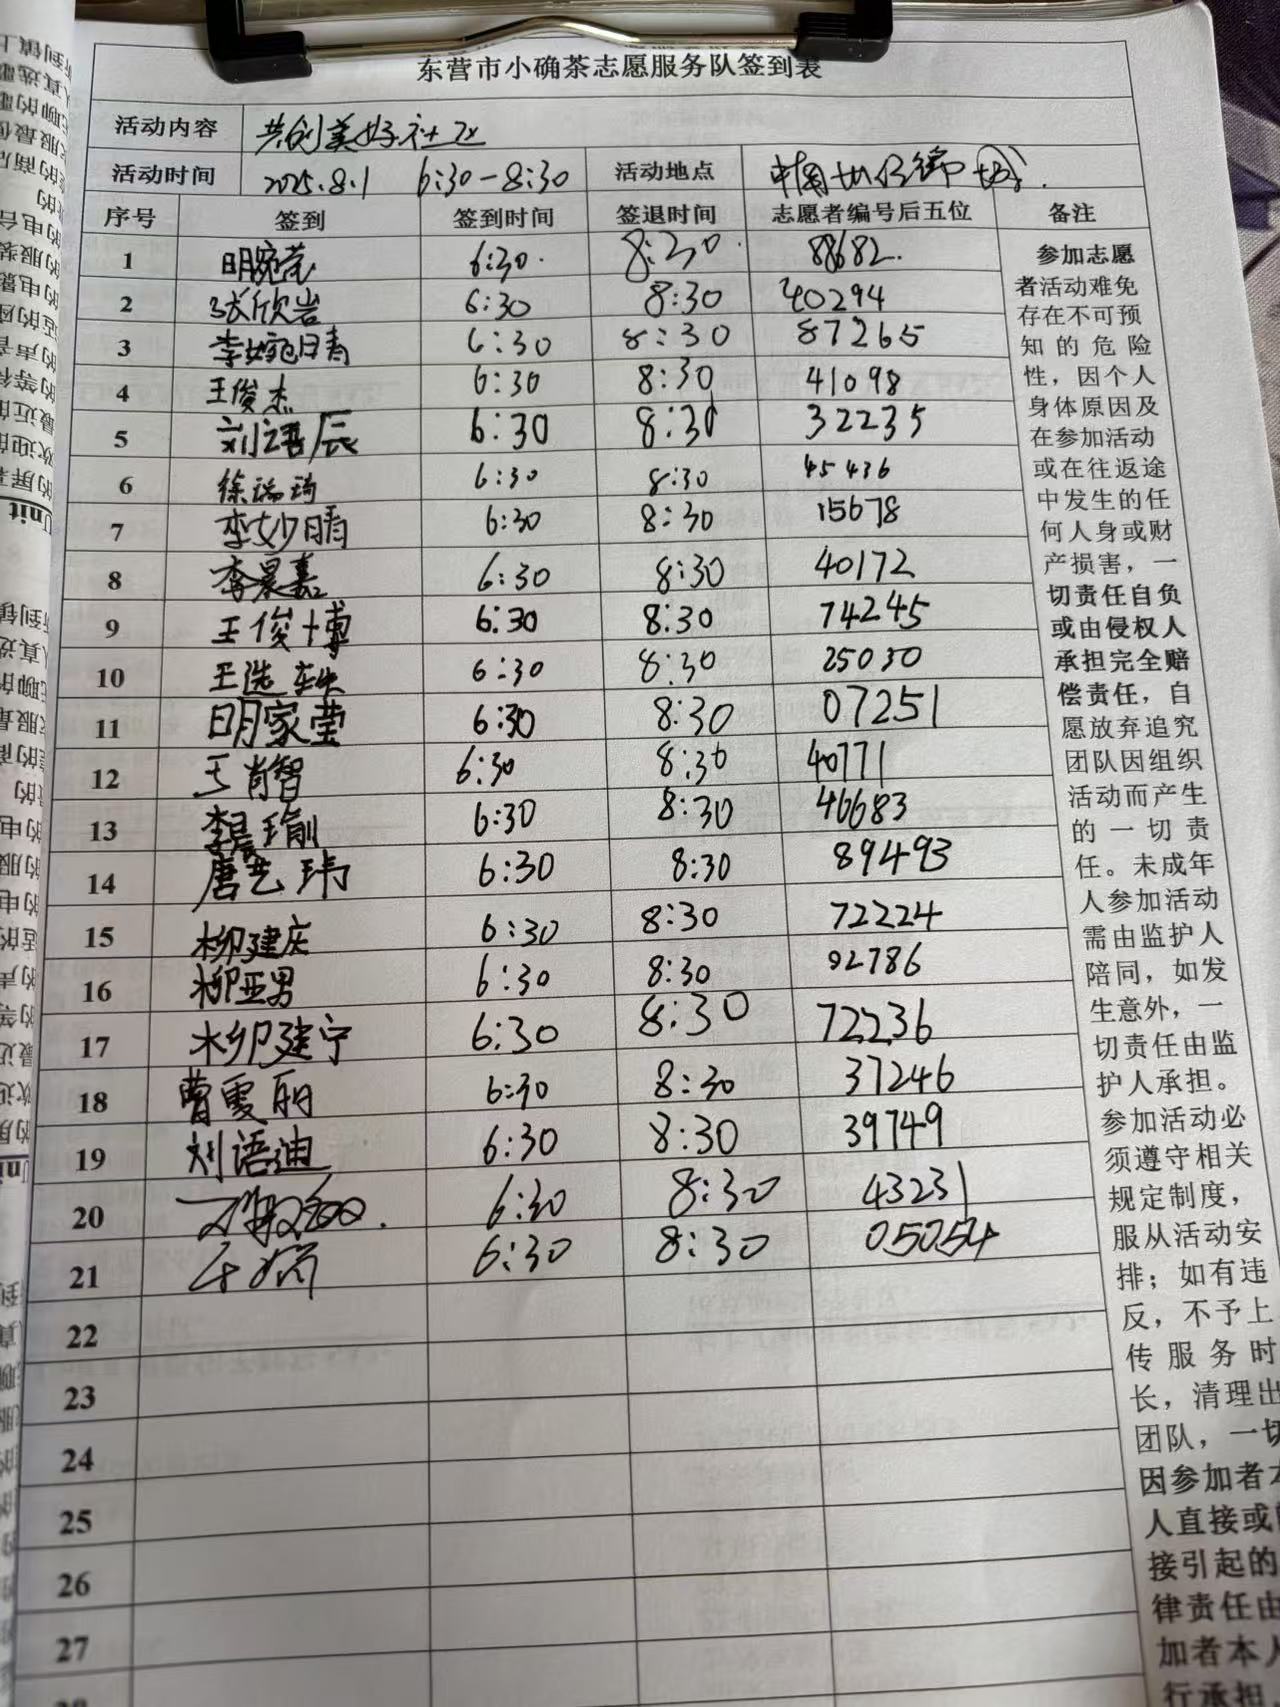 东营市小确茶志愿服务队签到表
活动内容 共创美好社区
活动时间 2025.8.1 6:30-8:30 活动地点
序号 签到 签到时间 签退时间 志愿者编号后五位 备注
1 明宛莹 6:30. 8:30. 88682.
2 张欣岩 6:30 8:30 40294
3 李婉晴 6:30 8:30 87265
4 王俊杰 6:30 8:30 41098
5 刘语辰 6:30 8:30 32235
6 徐瑞 6:30 8:30 45436
7 李妙晴 6:30 8:30 15678
8 李晨嘉 6:30 8:30 40172
9 王俊博 6:30 8:30 74245
10 王浩轶 6:30 8:30 25030
11 明家莹 6:30 8:30 07251
12 王肖智 6:30 8:30 40771
13 李晨瑜 6:30 8:30 46683
14 唐艺玮 6:30 8:30 89493
15 柳建庆 6:30 8:30 72224
16 柳亚男 6:30 8:30 02786
17 柳建宁 6:30 8:30 72236
18 曹霞丽 6:30 8:30 37246
19 刘语迪 6:30 8:30 39749
20 6:30 8:30 43231
21 6:30 8:30 05054
22
23
24
25
26
27
参加志愿
者活动难免
存在不可预
知的危险
性，因个人
身体原因及
在参加活动
或在往返途
中发生的任
何人身或财
产损害，一
切责任自负
或由侵权人
承担完全赔
偿责任，自
愿放弃追究
团队因组织
活动而产生
的一切责
任。未成年
人参加活动
需由监护人
陪同，如发
生意外，一
切责任由监
护人承担。
参加活动必
须遵守相关
规定制度，
服从活动安
排；如有违
反，不予上
传服务时
长，清理出
团队，一切
因参加者本
人直接或
接引起的
律责任由
加者本人
行承担